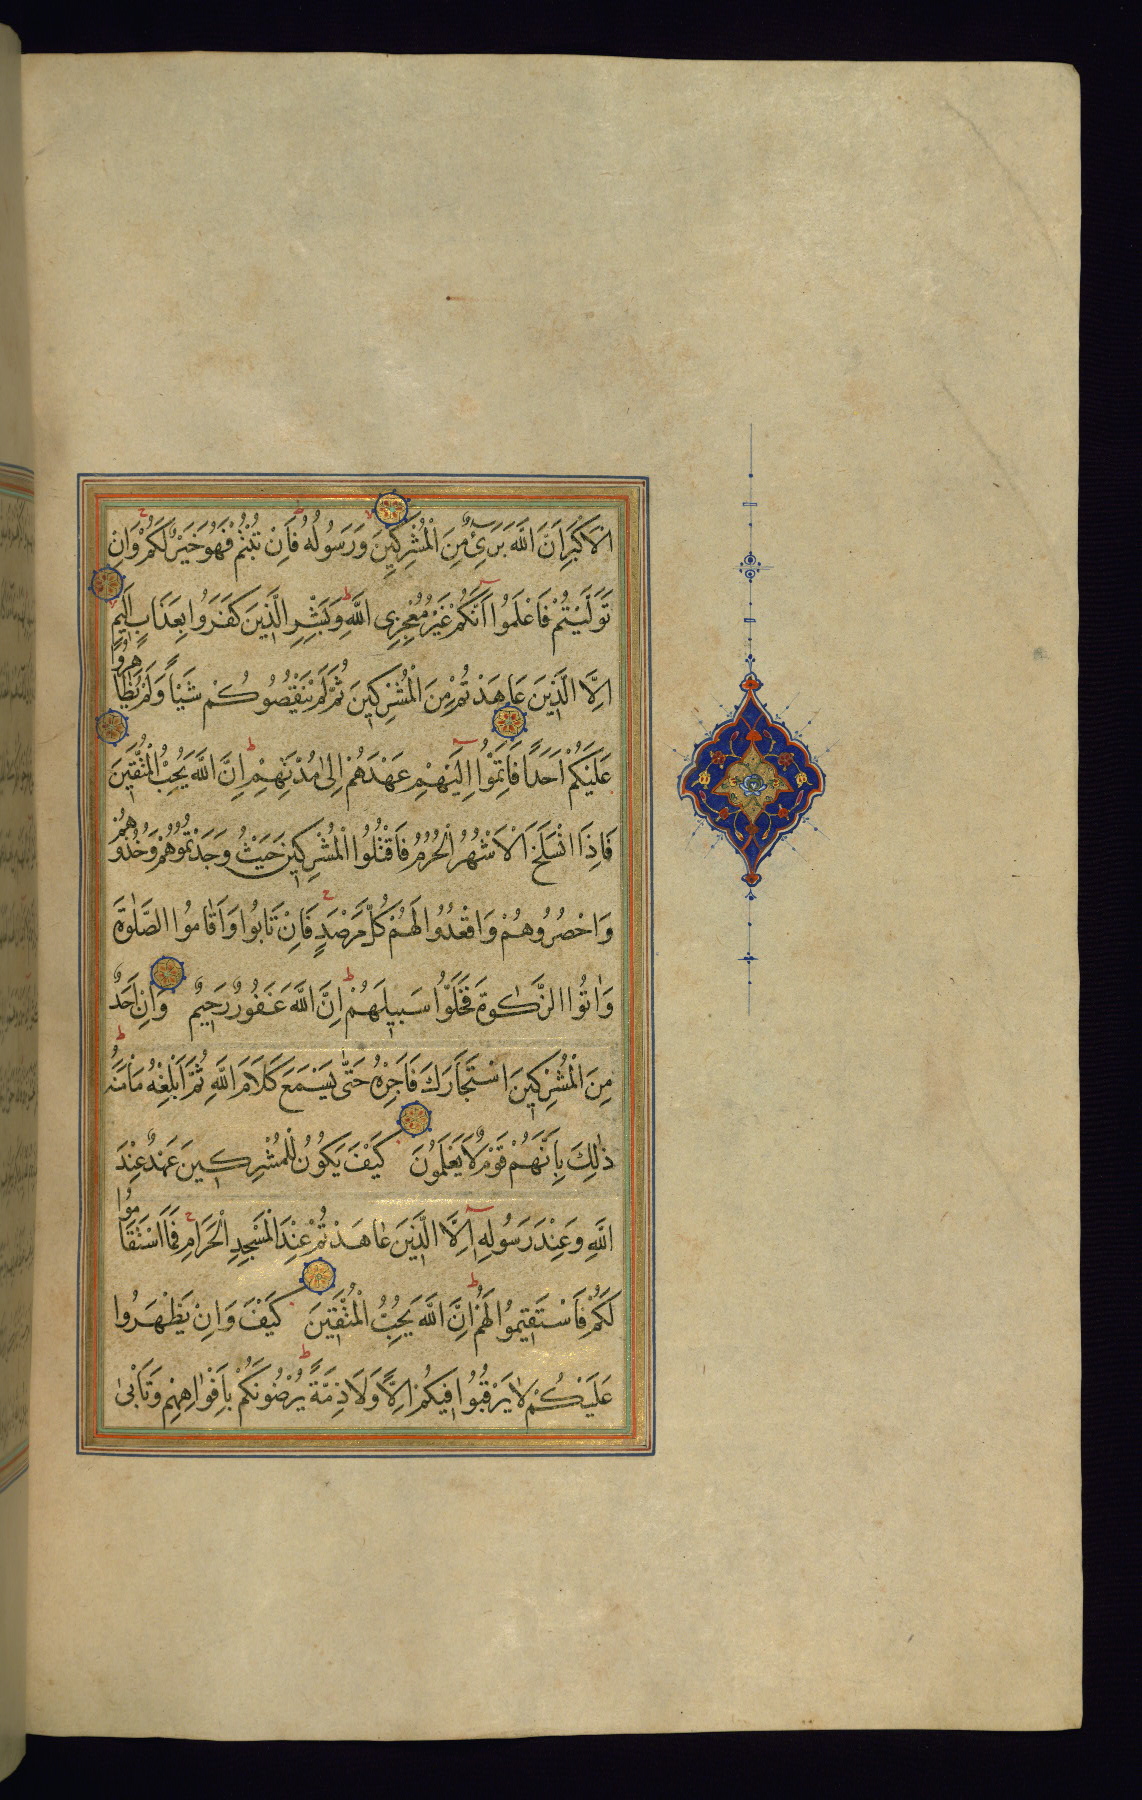 الْاَكْبَرِ اَنَّ اللّٰهَ بَرِیۤءٌ مِنَ الْمُشْرِكِینَ وَرَسُولُهُ فَاِنْ تُبْتُمْ فَهُوَ خَیْرٌ لَكُمْ وَاِنْ
تَوَلَّیْتُمْ فَاعْلَمُوا اَنَّكُمْ غَیْرُ مُعْجِزِی اللّٰهِ وَبَشِّرِ الَّذِینَ كَفَرُوا بِعَذَابٍ اَلِیمٍ
اِلَّا الَّذِینَ عَاهَدْتُمْ مِنَ الْمُشْرِكِینَ ثُمَّ لَمْ یَنْقُصُوكُمْ شَیْاً وَلَمْ یُظَاهِرُوا
عَلَیْكُمْ اَحَدًا فَاَتِمُّوا اِلَیْهِمْ عَهْدَهُمْ اِلٰی مُدَّتِهِمْ اِنَّ اللّٰهَ یُحِبُّ الْمُتَّقِینَ
فَاِذَا انْسَلَخَ الْاَشْهُرُ الْحُرُمُ فَاقْتُلُوا الْمُشْرِكِینَ حَیْثُ وَجَدْتُمُوهُمْ وَخُذُوهُمْ
وَاحْصُرُوهُمْ وَاقْعُدُوا لَهُمْ كُلَّ مَرْصَدٍ فَاِنْ تَابُوا وَاَقَامُوا الصَّلٰوةَ
وَاٰتَوُا الزَّكٰوةَ فَخَلُّوا سَبِیلَهُمْ اِنَّ اللّٰهَ غَفُورٌ رَحِیمٌ وَاِنْ اَحَدٌ
مِنَ الْمُشْرِكِینَ اسْتَجَارَكَ فَاَجِرْهُ حَتّٰی یَسْمَعَ كَلَامَ اللّٰهِ ثُمَّ اَبْلِغْهُ مَاْمَنَهُ
ذٰلِكَ بِاَنَّهُمْ قَوْمٌ لَا یَعْلَمُونَ كَیْفَ یَكُونُ لِلْمُشْرِكِینَ عَهْدٌ عِنْدَ
اللّٰهِ وَعِنْدَ رَسُولِهِ اِلَّا الَّذِینَ عَاهَدْتُمْ عِنْدَ الْمَسْجِدِ الْحَرَامِ فَمَا اسْتَقَامُوا
لَكُمْ فَاسْتَقِیمُوا لَهُمْ اِنَّ اللّٰهَ یُحِبُّ الْمُتَّقِینَ كَیْفَ وَاِنْ یَظْهَرُوا
عَلَیْكُمْ لَا یَرْقُبُوا فِیكُمْ اِلًّا وَلَا ذِمَّةً یُرْضُونَكُمْ بِاَفْوَاهِهِمْ وَتَاْبٰی